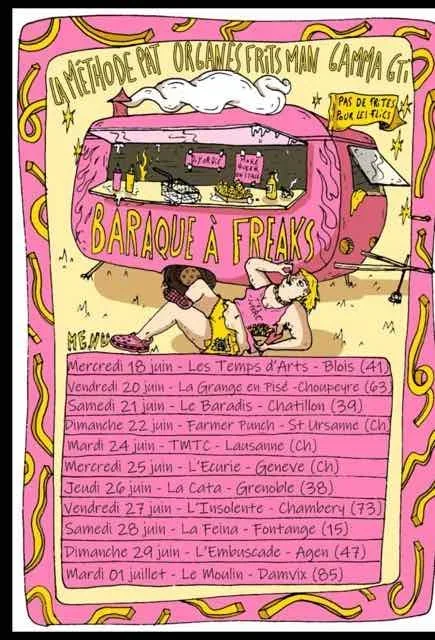 LA MÉTHODE PAT ORGANES FRITS MAN GAMMA GTi
PAS DE FRITES
POUR LES FLICS
BARAQUE À FREAKS
MENU
Mercredi 18 juin - Les Temps d'Arts - Blois (41)
Vendredi 20 juin - La Grange en Pisé -Choupeyre (63)
Samedi 21 juin - Le Baradis - Chatillon (39)
Dimanche 22 juin - Farmer Punch - St Ursanne (Ch)
Mardi 24 juin - TMTC - Lausanne (Ch)
Mercredi 25 juin - L'Ecurie - Geneve (Ch)
Jeudi 26 juin - La Cata - Grenoble (38)
Vendredi 27 juin - L'Insolente - Chambery (73)
Samedi 28 juin - La Feina - Fontange (15)
Dimanche 29 juin - L'Embuscade - Agen (47)
Mardi 01 juillet - Le Moulin - Damvix (85)